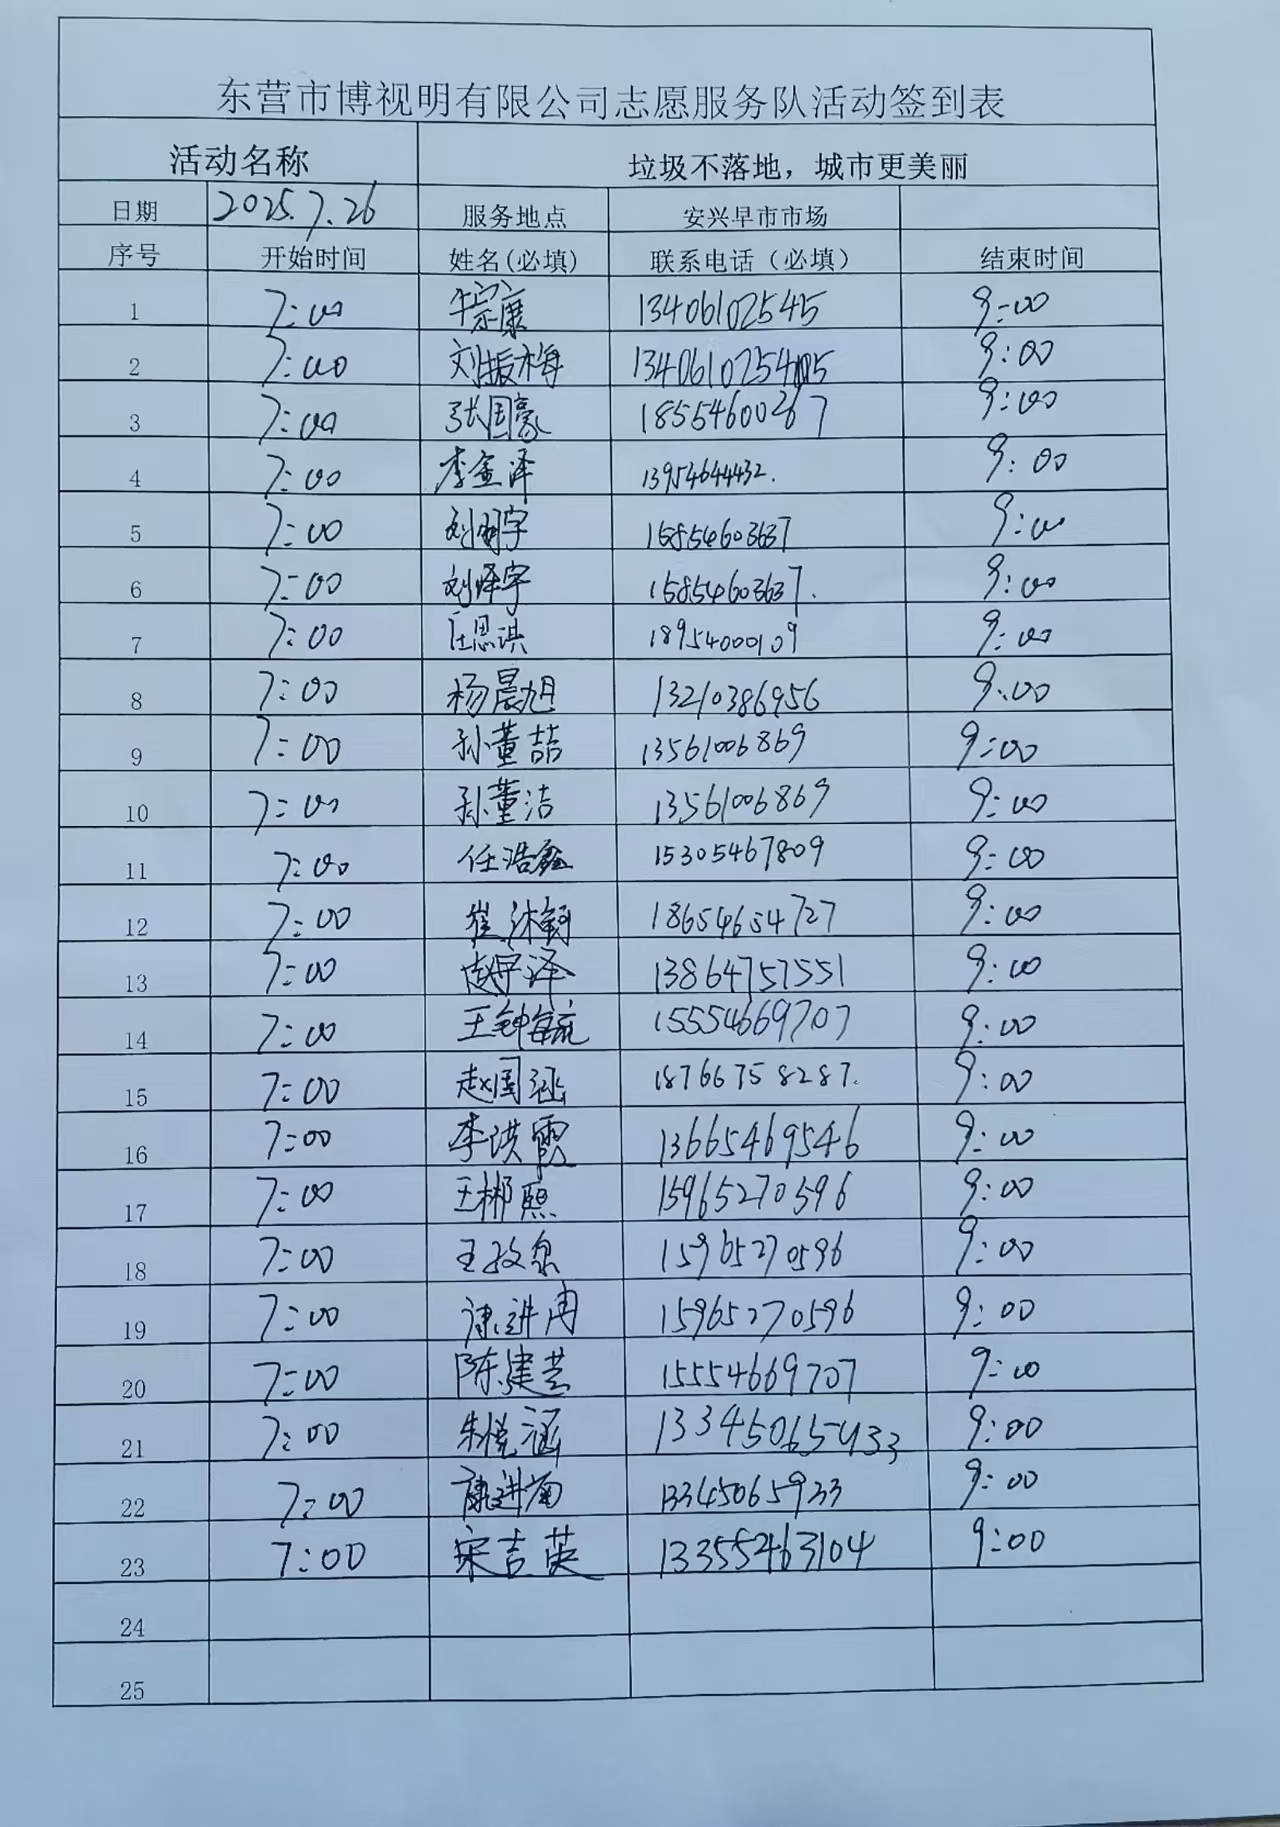 东营市博视明有限公司志愿服务队活动签到表
活动名称 垃圾不落地，城市更美丽
日期 2025.7.26 服务地点 安兴早市市场
序号 开始时间 姓名(必填) 联系电话（必填） 结束时间
1 7:00 牛宗康 13406102545 9:00
2 7:00 刘振梅 134061025 9:00
3 7:00 张国豪 18554600267 9:00
4 7:00 李金泽 13954644432. 9:00
5 7:00 刘明宇 15854603637 9:00
6 7:00 刘泽宇 15854603637. 9:00
7 7:00 任思淇 18954000109 9:00
8 7:00 杨晨旭 13210386956 9:00
9 7:00 孙董喆 13561006869 9:00
10 7:00 孙董洁 13561006869 9:00
11 7:00 任浩鑫 15305467809 9:00
12 7:00 崔沐 18654654727 9:00
13 7:00 赵宇泽 13864757551 9:00
14 7:00 王钟毓 15554669707 9:00
15 7:00 赵国涵 18766758287. 9:00
16 7:00 李洪霞 13665469546 9:00
17 7:00 王郴熙 15965270596 9:00
18 7:00 王 15965270596 9:00
19 7:00 康进冉 15965270596 9:00
20 7:00 陈建芸 15554669707 9:00
21 7:00 朱悦涵 13345065933 9:00
22 7:00 康进菊 13345065933 9:00
23 7:00 宋吉英 13355463104 9:00
24
25